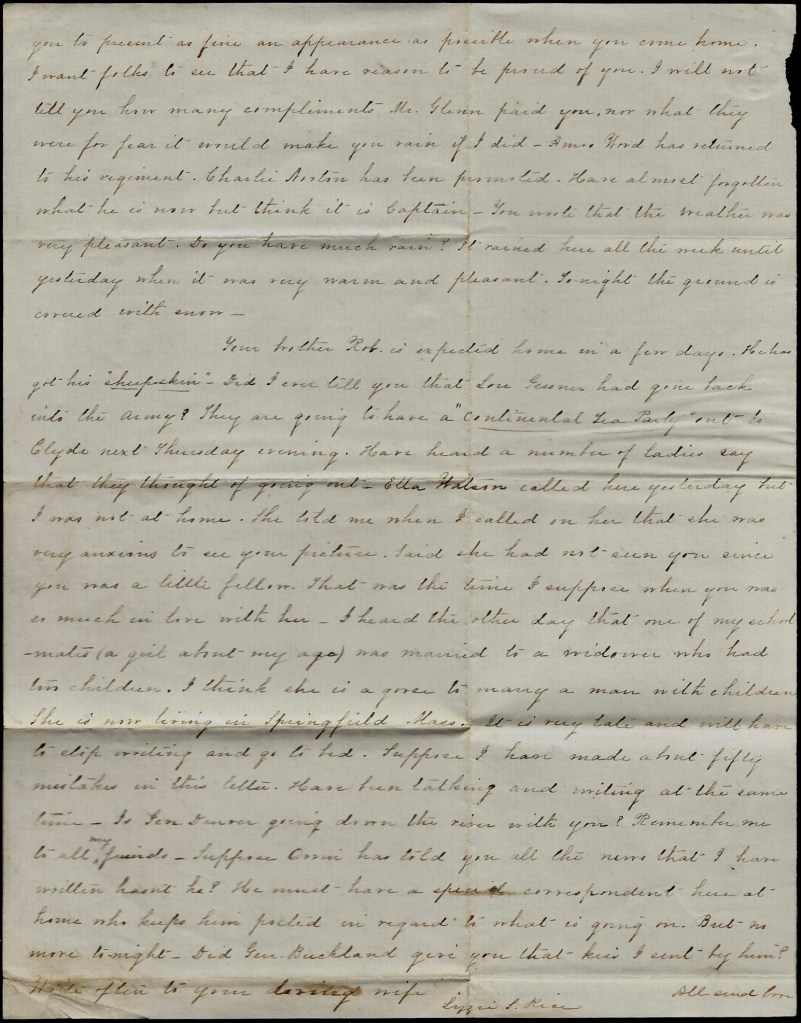 you to present as fine an appearance as possible when you come home.
I want folks to see that I have reason to be proud of you. I will not
tell you how many compliments Mr. Glenn paid you, nor what they
were for fear it would make you vain if I did - Amos Wood has returned
to his regiment. Charlie Norton has been promoted. Have almost forgotten
what he is now but think it is Captain - You wrote that the weather was
very pleasant. Do you have much rain? It rained here all the week until
yesterday when it was very warm and pleasant. To-night the ground is
covered with snow -
Your brother Rob. is expected home in a few days. He has
got his "sheepskin" - Did I ever tell you that Lou Gessner had gone back
into the army? They are going to have a "Continental Tea Party" out to
Clyde next Thursday evening. Have heard a number of ladies say
that they thought of going out - Ella Watson called here yesterday but
I was not at home. She told me when I called on her that she was
very anxious to see your picture. Said she had not seen you since
you was a little fellow. That was the time I suppose when you was
so much in love with her - I heard the other day that one of my school
-mates (a girl about my age) was married to a widower who had
two children. I think she is a goose to marry a man with children
She is now living in Springfield Mass. It is very late and will have
to stop writing and go to bed. Suppose I have made about fifty
mistakes in this letter. Have been talking and writing at the same
time - Is Gen Denver going down the river with you? Remember me
to all my friends - Suppose Orrin has told you all the news that I have
written hasnt he? He must have a special correspondent here at
home who keeps him posted in regard to what is going on. But no
more to-night - Did Gen. Buckland give you that kiss I sent by him?
Write often to your loving wife
Lizzie S. Rice
All send love